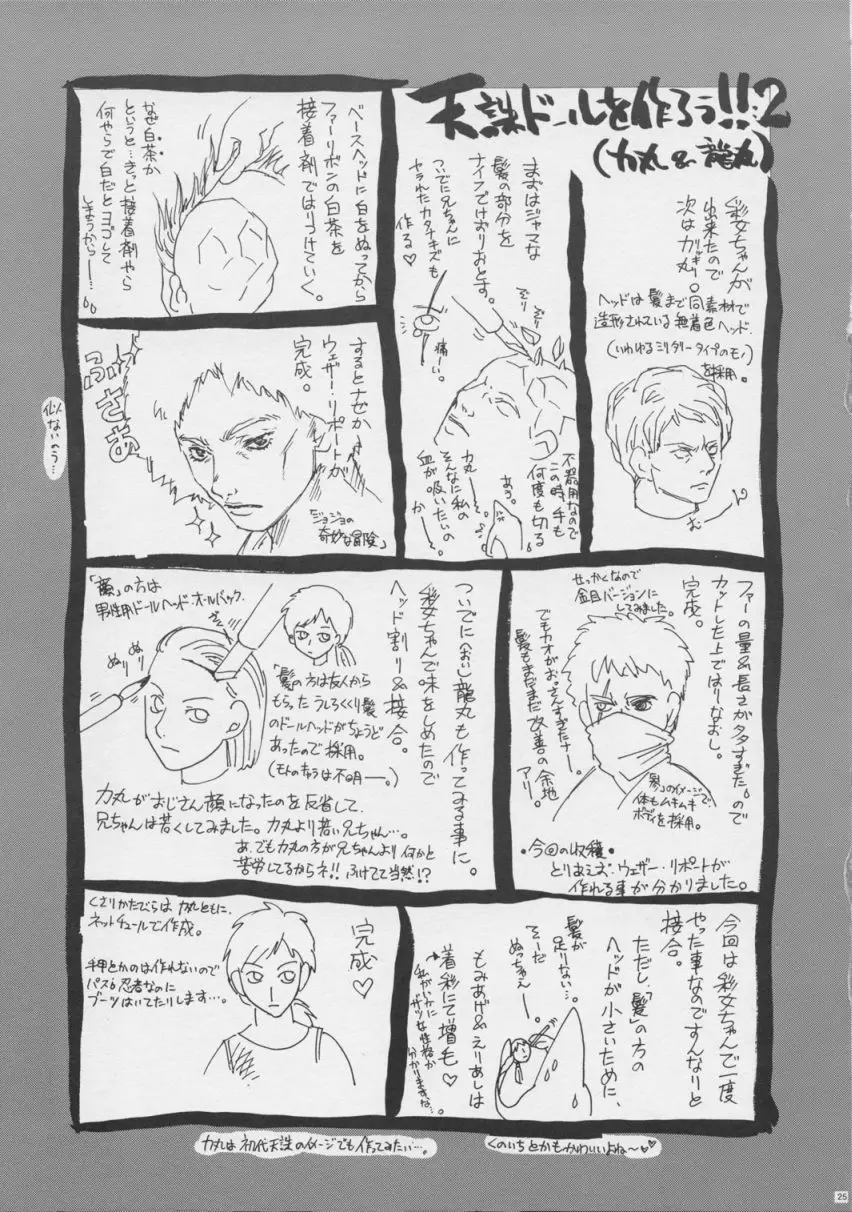 天誅ドールを作ろう!!2
(力丸&龍丸)
彩女ちゃんが
出来たので
次は力丸。
ヘッドは髪まで同素材で
造形されている無着色ヘッド。
(いわゆるミリタリータイプのモノ)
を採用。
まずはジャマな
髪の部分を
ナイフでけずりおとす。
ついでに兄ちゃんに
ヤラれたカタナキズも
作る♡
ぞり
ぞり
痛ーい。
不器用なので
この時、手も
何度も切る
あう。
力丸ー。
そんなに私の
血が吸いたいの
かーー。
ベースヘッドに白をぬってから
ファーリボンの白茶を
接着剤ではりつけていく。
なぜ白茶か
というと…きっと接着剤やら
何やらで白だとヨゴして
しまうからー…。
するとナゼか
ウェザー・リポートが
完成。
ふさぁ
ジョジョの
奇妙な冒険
似ないのう…
ファーの量&長さが多すぎた。ので
カットした上ではりなおし。
完成。
せっかくなので
金目バージョンに
してみました。
でもカオがおっさんすぎたナー。
髪もまだまだ改善の余地
アリ。
「参」のイメージで
体もムキムキ
ボディを採用。
・今回の収穫・
とりあえズ、ウェザー・リポートが
作れる事が分かりました。
ついでに(おい)龍丸も作ってみる事に。
彩女ちゃんで味をしめたので
ヘッド割り&接合。
男性用ドールヘッド・オールバック。
ぬり
ぬり
「髪」の方は友人から
もらったうしろくくり髪
のドールヘッドがちょうど
あったので採用。
(モトのキャラは不明ー。)
力丸がおじさん顔になったのを反省して、
兄ちゃんは若くしてみました。力丸より若い兄ちゃん…。
あ、でも力丸の方が兄ちゃんより何かと
苦労してるからネ!!ふけてて当然!?
今回は彩女ちゃんで一度
やった事なのですんなりと
接合。
ただし、「髪」の方の
ヘッドが小さいために、
髪が
足りない…。
そーだ
ぬっちゃえー。
もみあげ&えりあしは
着彩にて増毛♡
私がいかに
ザツな性格か
分かりますな…。
完成♡
くさりかたびらは力丸ともに、
ネットチュールで作成。
手甲とかのは作れないので
パス6忍者なのに
ブーツはいてたりします…。
力丸は初代天誅のイメージでも作ってみたい…。
くのいちとかもかわいいよね〜♡
25